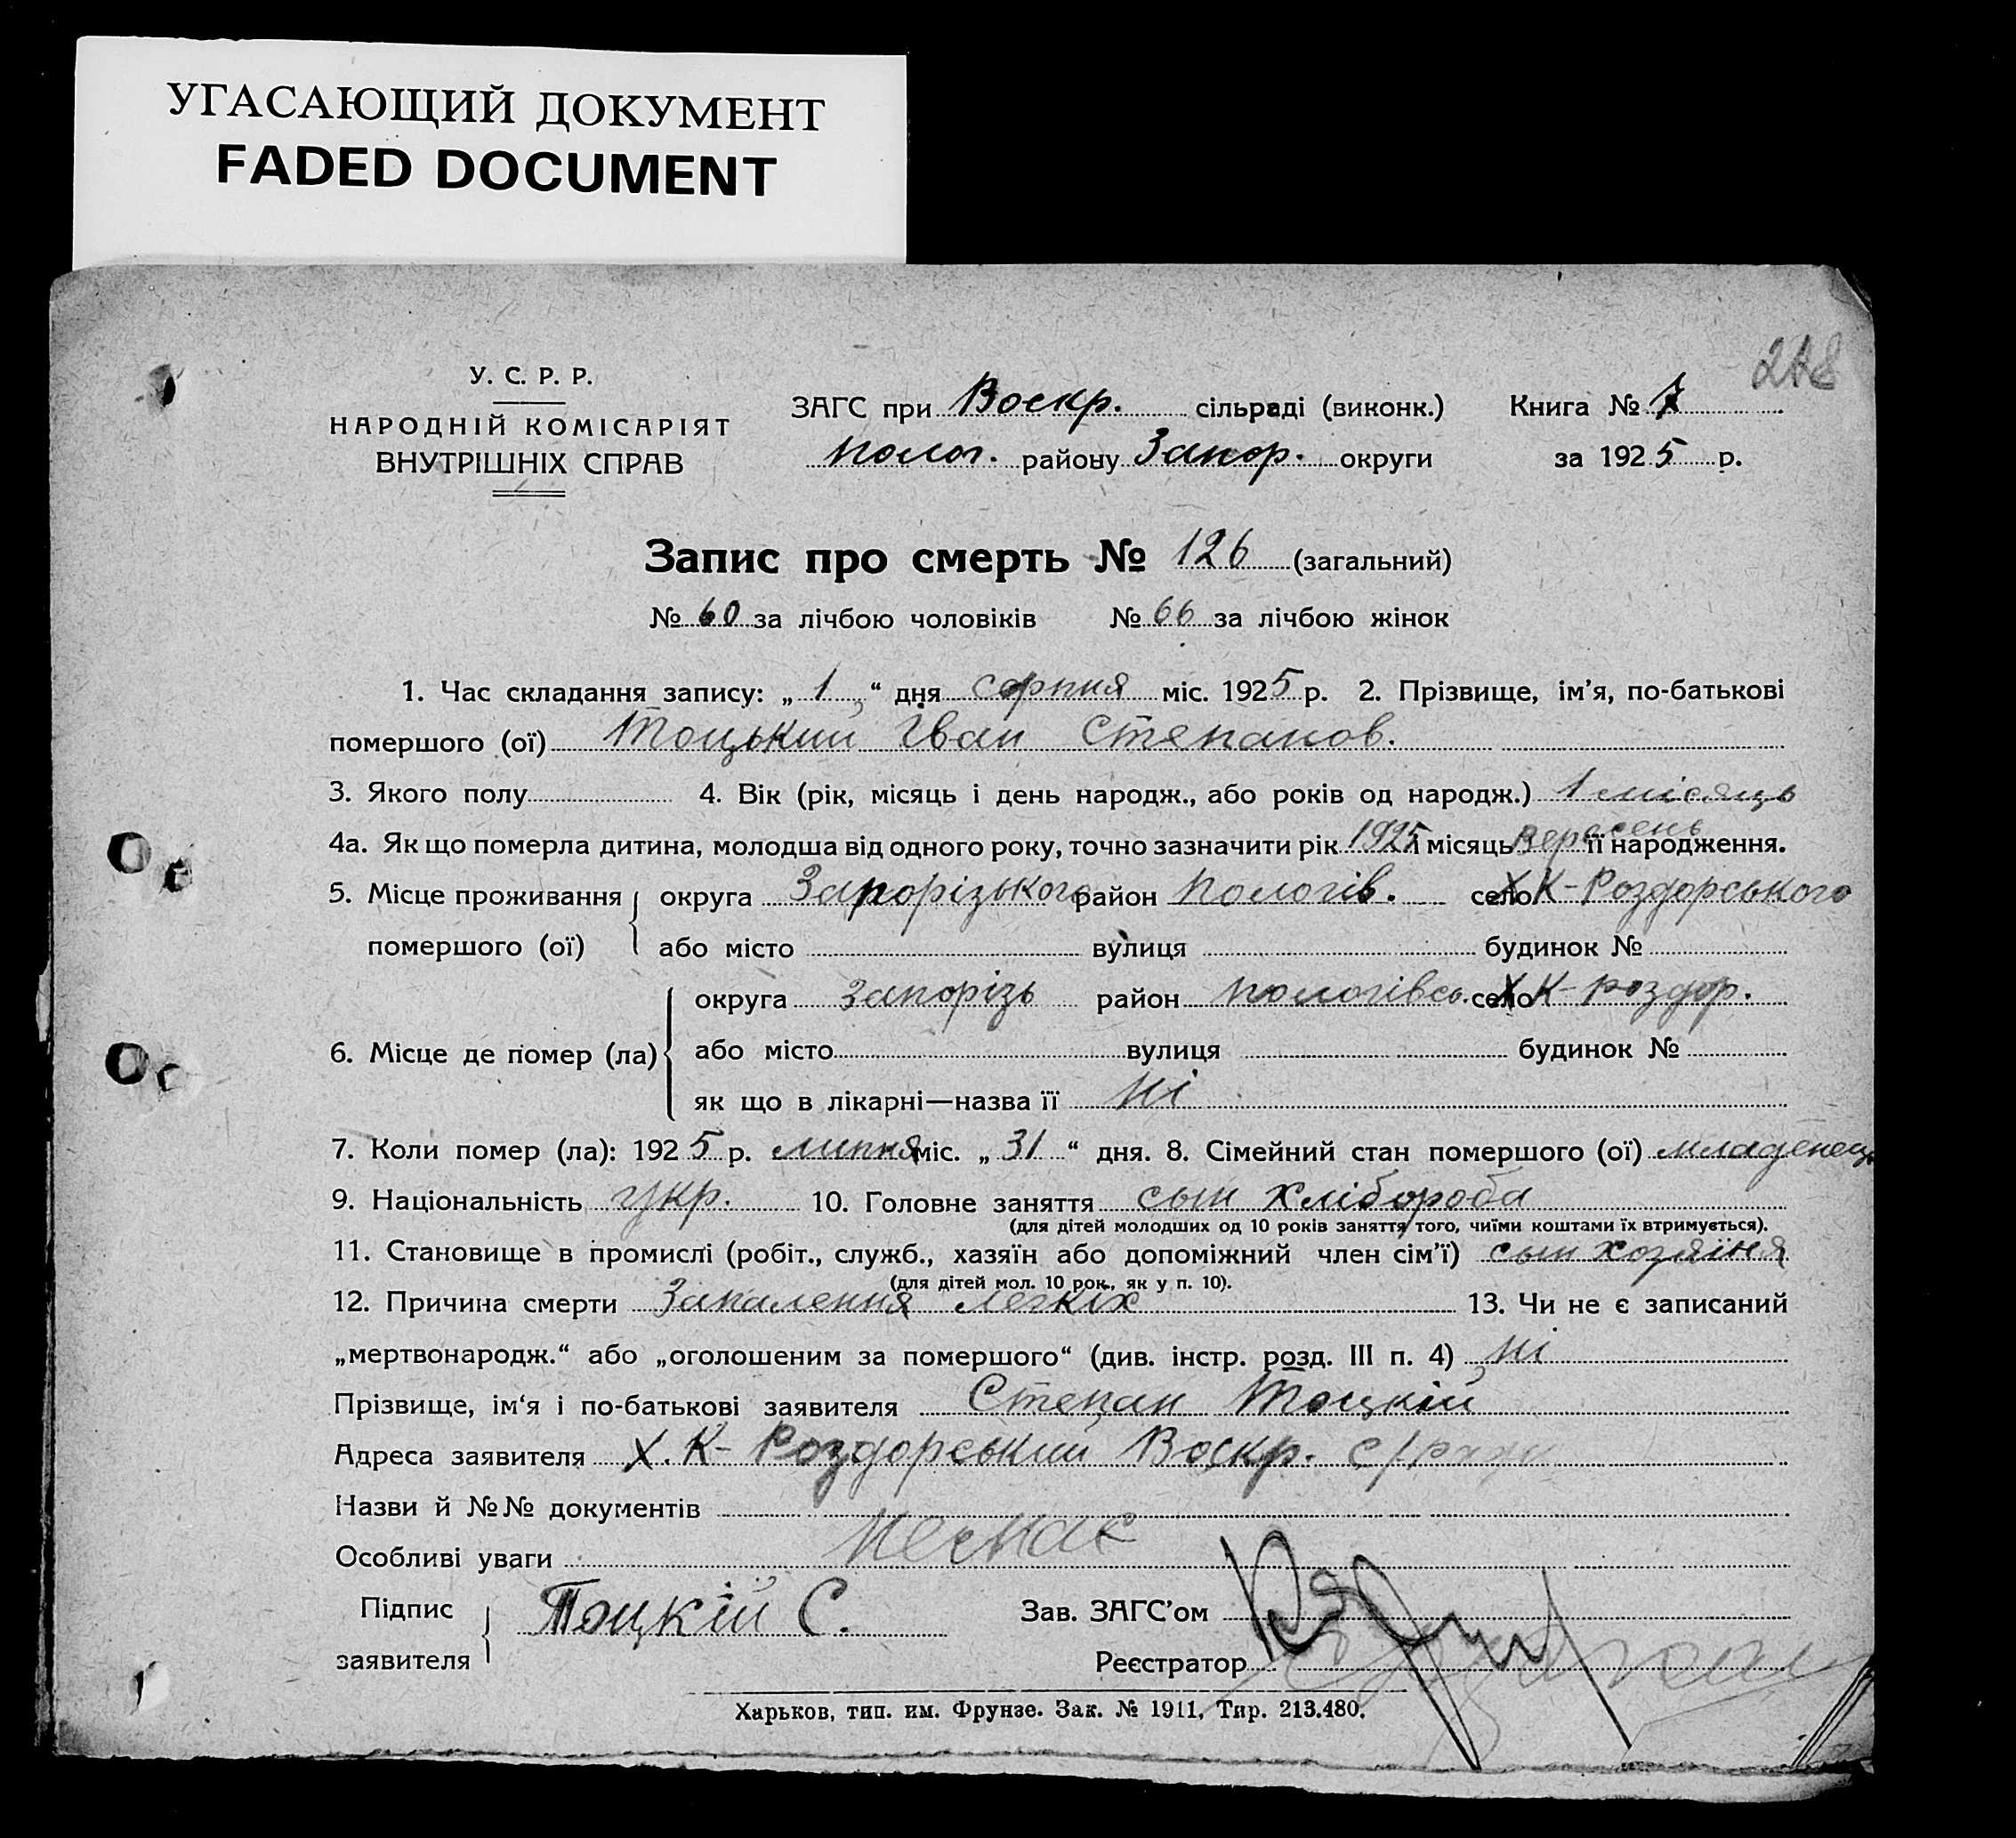 УГАСАЮЩИЙ ДОКУМЕНТ
FADED DOCUMENT
У. С. Р. Р.
НАРОДНІЙ КОМІСАРІЯТ
ВНУТРІШНІХ СПРАВ
ЗАГС при Воскр. сільраді (виконк.) Книга № 7
полог. району Запор. округи за 1925 р.
Запис про смерть № 126 (загальний)
№ 60 за лічбою чоловіків № 66 за лічбою жінок
1. Час складання запису: „ 1 “ дня серпня міс. 1925 р. 2. Прізвище, ім’я, по-батькові
помершого (ої) Тоцький Іван Степанов.
3. Якого полу 4. Вік (рік, місяць і день народж., або років од народж.) 1 місяць
4а. Як що померла дитина, молодша від одного року, точно зазначити рік 1925 і місяць вересень її народження.
5. Місце проживання округа Запорізького район Пологів. село Х К-Роздорського
помершого (ої) або місто вулиця будинок №
округа Запорізь район пологівсь. село Х К-роздор.
6. Місце де помер (ла) або місто вулиця будинок №
як що в лікарні—назва її ні
7. Коли помер (ла): 1925 р. липня міс. „ 31 “ дня. 8. Сімейний стан помершого (ої) младенець
9. Національність укр. 10. Головне заняття сын хлібороба
(для дітей молодших од 10 років заняття того, чиїми коштами їх втримується).
11. Становище в промислі (робіт., служб., хазяїн або допоміжний член сім’ї) сын хозяїня
(для дітей мол. 10 рок., як у п. 10).
12. Причина смерти Запалення легкіх 13. Чи не є записаний
„мертвонародж.“ або „оголошеним за помершого“ (див. інстр. розд. III п. 4) ні
Прізвище, ім‘я і по-батькові заявителя Степан Тоцкій
Адреса заявителя Х. К-Роздорський Воскр. с/ради
Назви й №№ документів
Особливі уваги немає
Підпис заявителя Тоцкій С.
Зав. ЗАГС’ом
Реєстратор
Харьков, тип. им. Фрунзе. Зак. № 1911, Тир. 213.480.